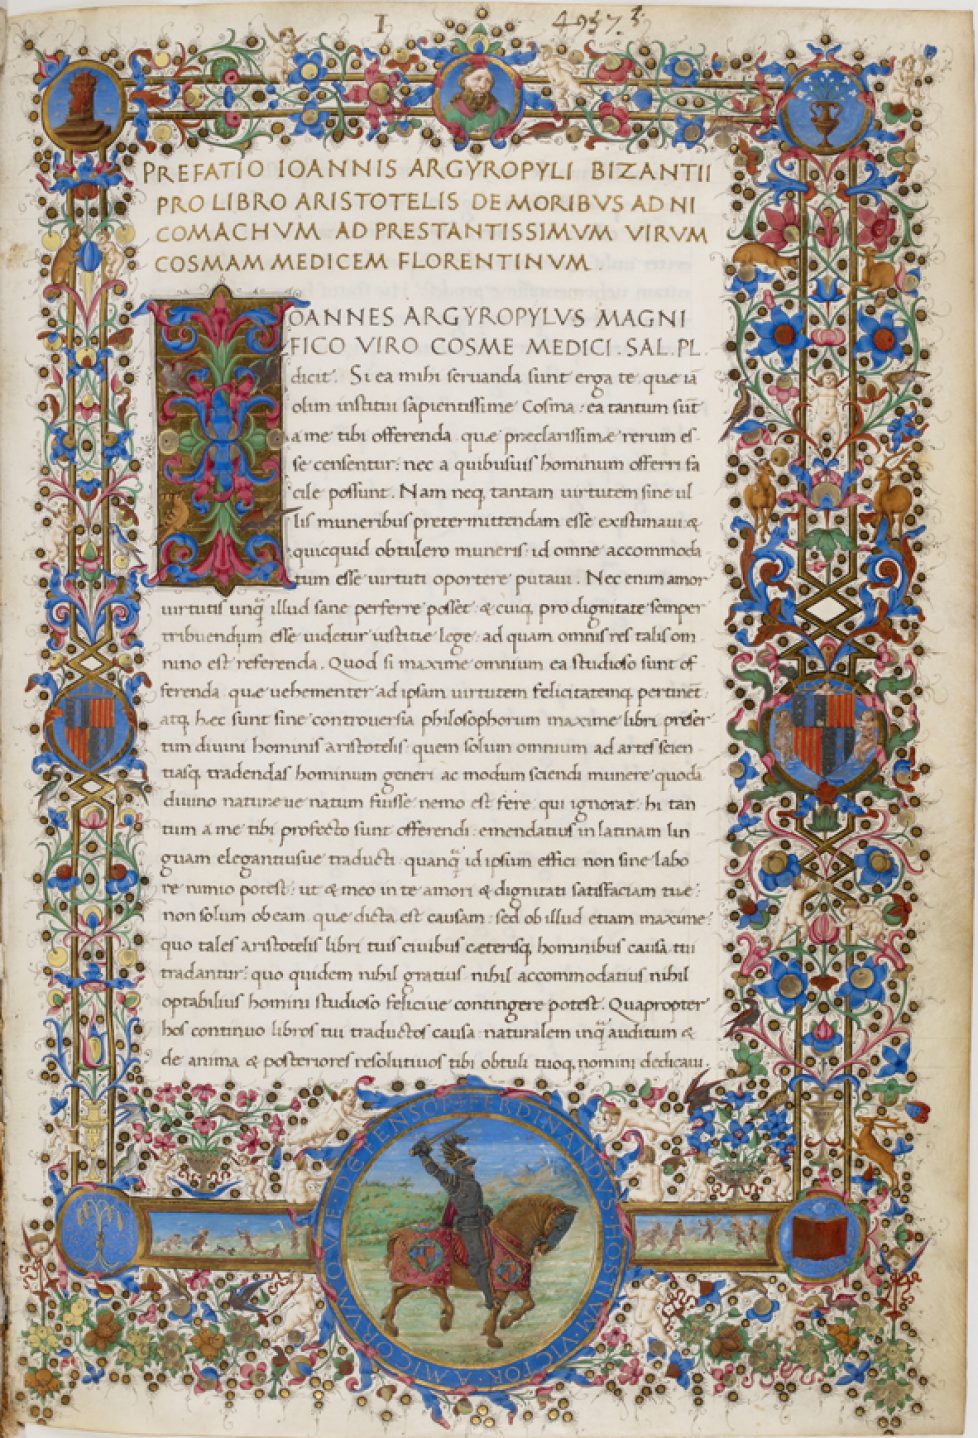 I 4937.3
PREFATIO IOANNIS ARGYROPYLI BIZANTII
PRO LIBRO ARISTOTELIS DE MORIBVS AD NI
COMACHVM AD PRESTANTISSIMVM VIRVM
COSMAM MEDICEM FLORENTINVM.
IOANNES ARGYROPYLVS MAGNI
FICO VIRO COSME MEDICI. SAL. PL.
dicit. Si ea mihi seruanda sunt erga te que iā
olim institui sapientissime Cosma: ea tantum sūt
a me tibi offerenda quæ preclarissimæ rerum es
se censentur: nec a quibusuis hominum offerri fa
cile possunt. Nam neq, tantam uirtutem sine ul
lis muneribus pretermittendam esse existimaui &
quicquid obtulero muneris: id omne accommoda
tum esse uirtuti oportere putaui. Nec enim amor
uirtutis unq̄ illud sane perferre posset & cuiq, pro dignitate semper
tribuendum esse uidetur iustitiæ lege: ad quam omnis res talis om
nino est referenda. Quod si maxime omnium ea studioso sunt of
ferenda quæ uehementer ad ipsam uirtutem felicitatemq, pertinēt:
atq, hæc sunt sine controuersia philosophorum maxime libri preser
tim diuini hominis aristotelis: quem solum omnium ad artes scien
tiasq, tradendas hominum generi ac modum sciendi munere quodā
diuino nature ue natum fuisse nemo est fere qui ignorat: hi tan
tum a me tibi profecto sunt offerendi: emendatius in latinam lin
guam elegantiusue traducti: quanq̄ id ipsum effici non sine labo
re nimio potest: ut & meo in te amori & dignitati satisfaciam tuæ:
non solum ob eam quæ dicta est causam: sed ob illud etiam maxime:
quo tales aristotelis libri tuis ciuibus cæterisq, hominibus causa tui
tradantur: quo quidem nihil gratius nihil accommodatius nihil
optabilius homini studioso feliciue contingere potest. Quapropter
hos continuo libros tui traductos causa: naturalem inq̄ auditum &
de anima & posteriores resolutiuos tibi obtuli tuoq, nomini dedicaui.
FERDINANDVS HOSTIVM VICTOR AMICORVMQVE DEFENSOR